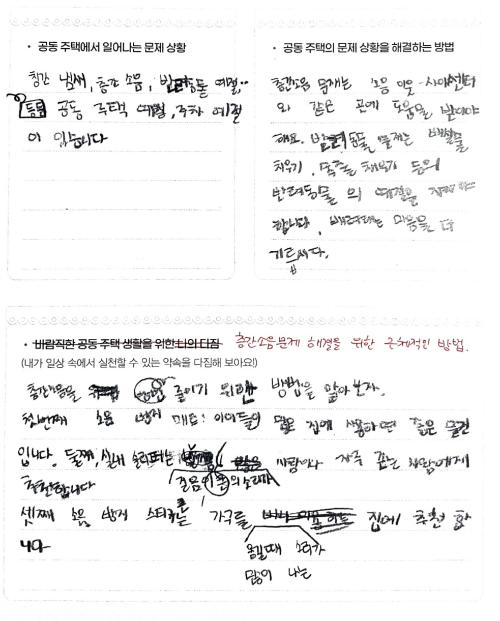 • 공동 주택에서 일어나는 문제 상황
층간 냄새, 층간 소음, 반려동물 예절..
등등 공동 주택 예절, 주차 예절
이 있습니다
• 공동 주택의 문제 상황을 해결하는 방법
층간소음 문제는 소음 이웃-사이센터
와 같은 곳에 도움을 받아야
해요. 반려동물 문제는 배설물
치우기, 목줄 채우기 등의
반려동물의 예절을 지켜야
합니다. 배려하는 마음을 더
기르세다.
• 바람직한 공동 주택 생활을 위한 나의 다짐 층간소음문제 해결을 위한 구체적인 방법.
(내가 일상 속에서 실천할 수 있는 약속을 다짐해 보아요!)
층간소음을 줄이기 위한 방법을 알아보자.
첫번째 소음 방지 매트: 아이들이 많은 집에 사용하면 좋은 물건
입니다. 둘째, 실내 슬리퍼는 걸음의 소리가 사람이나 자주 사람에게
추천합니다
셋째 소음 방지 스티커는 가구를 옮길때 소리가 많이 나는 집에 추천 합
니다